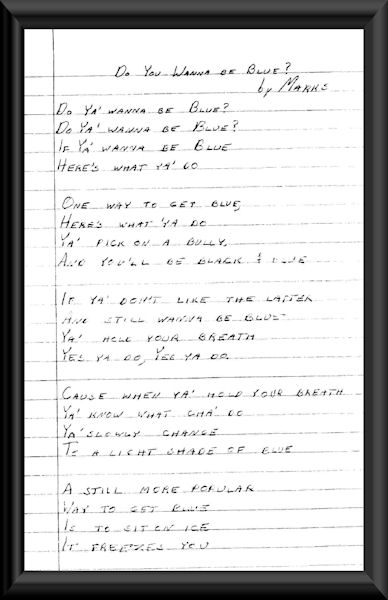 Do You Wanna be Blue?
by Marks
Do Ya' wanna be Blue?
Do Ya' wanna be Blue?
If Ya' wanna be Blue
Here's what ya' do
One way to get blue,
Here's what 'ya do
Ya' pick on a bully,
And you'll be black & blue
If ya' don't like the latter
And still wanna be blue
Ya' hold your breath
Yes ya do, Yes ya do.
Cause when ya' hold your breath
Ya' know what cha' do
Ya' slowly change
To a light shade of blue
A still more popular
Way to get blue
Is to sit on ice
It freezes you